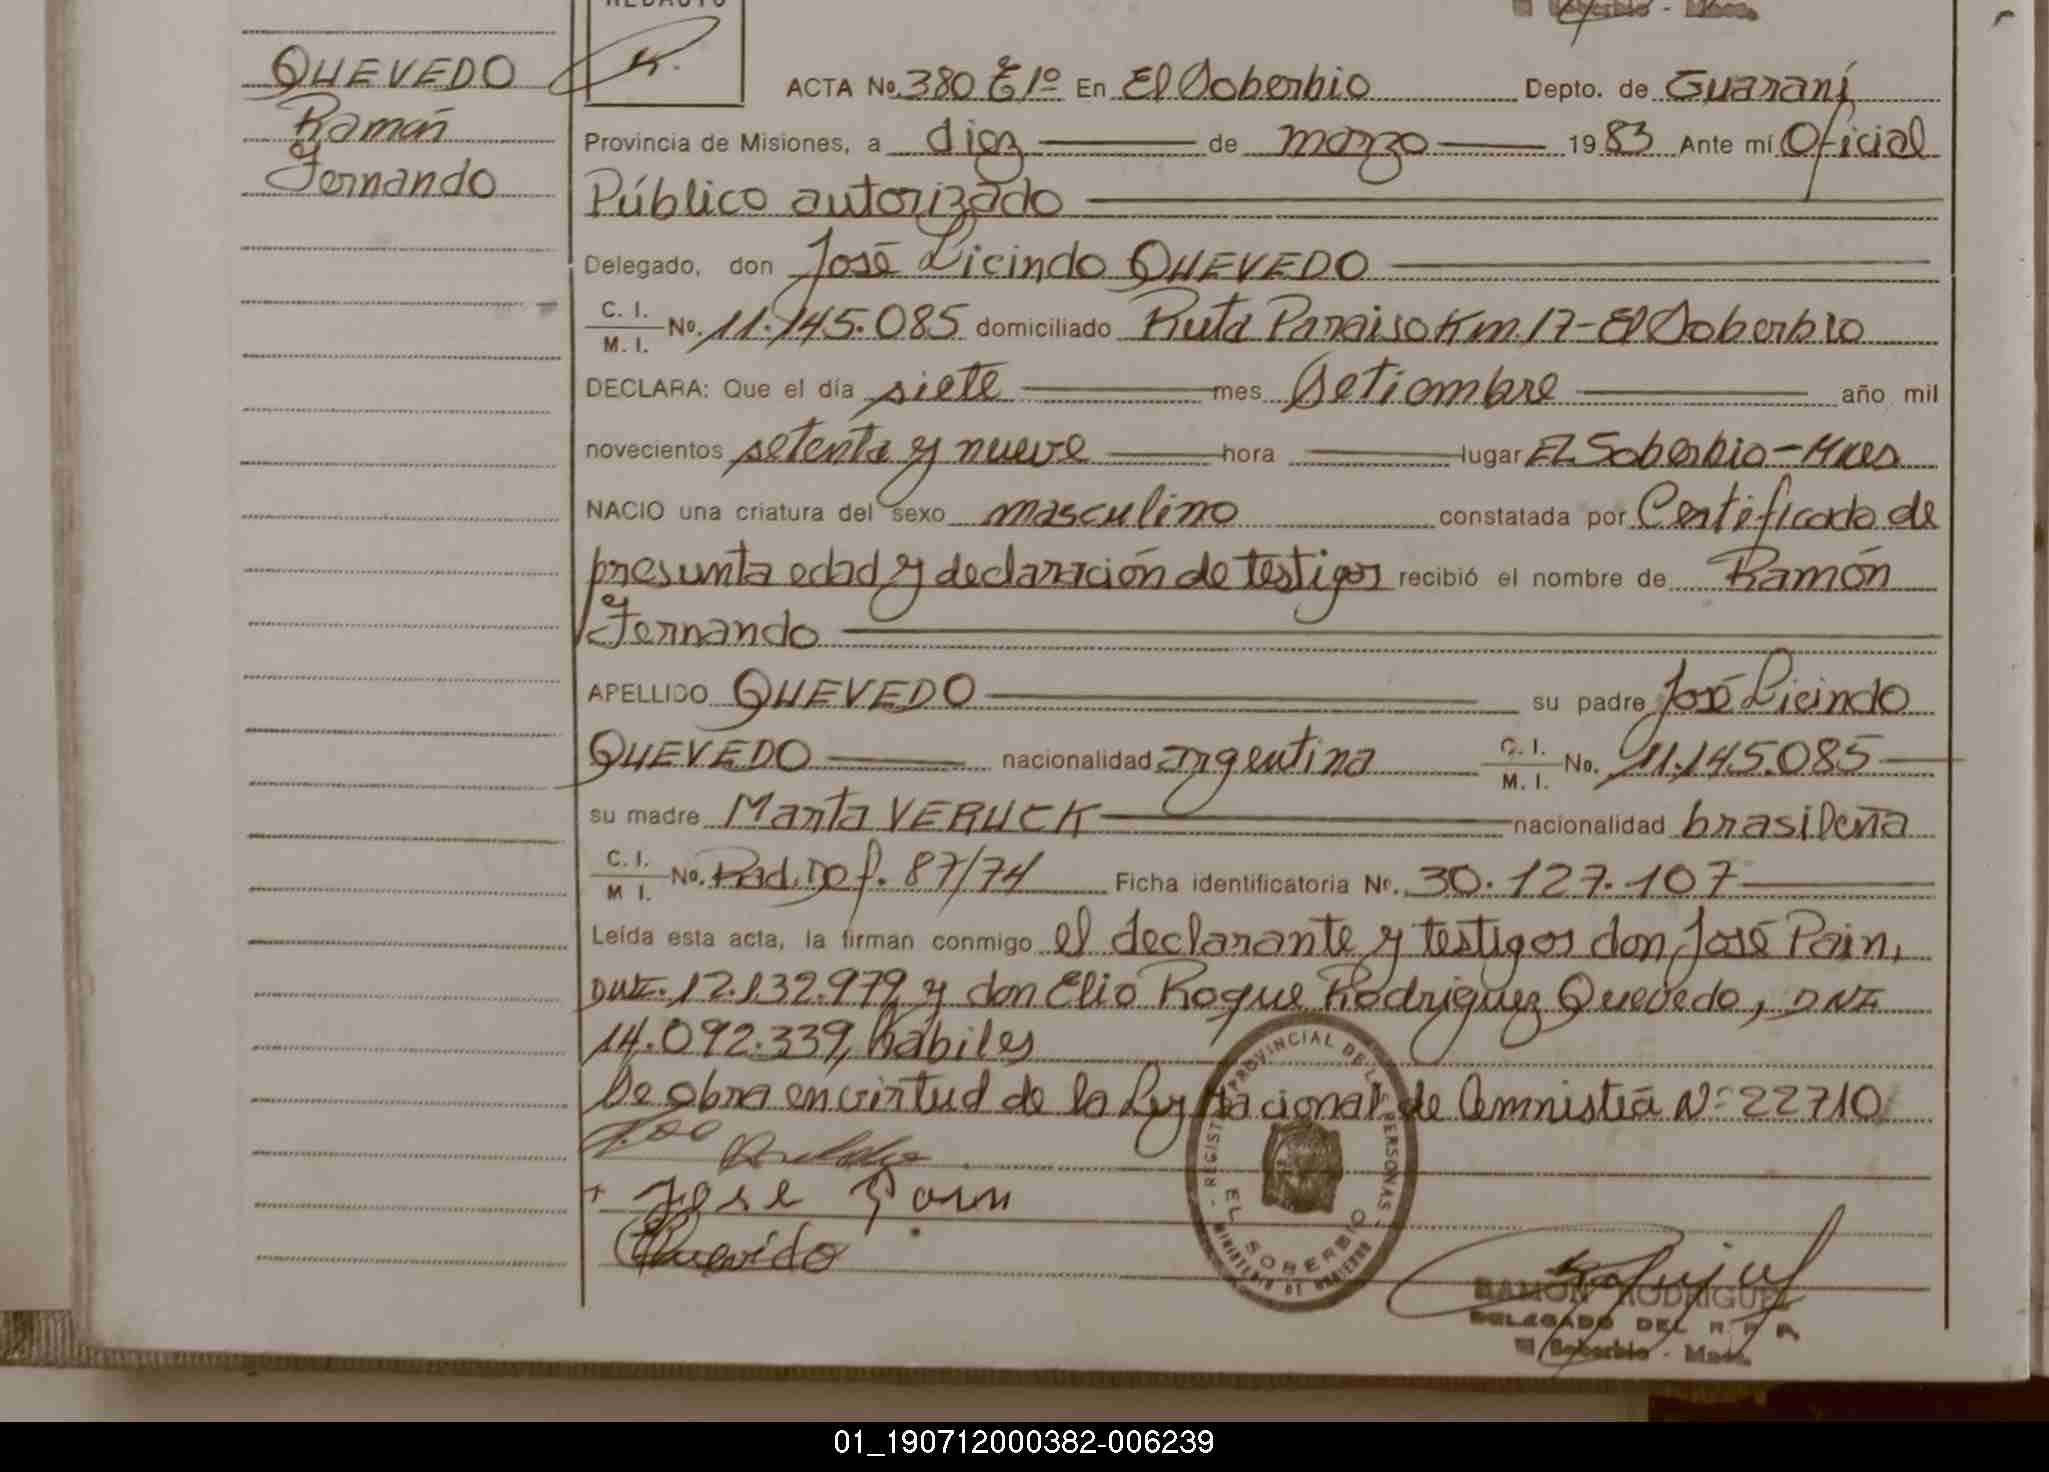 REDACTO
El Soberbio - Mnes.
QUEVEDO
Ramón
Fernando
ACTA No. 380 Tº 1º En El Soberbio Depto. de Guaraní
Provincia de Misiones, a diez de marzo 1983 Ante mí Oficial
Público autorizado
Delegado, don José Licindo QUEVEDO
C. I.
M. I. No. 11.145.085 domiciliado Ruta Paraiso Km. 17 - El Soberbio
DECLARA: Que el día siete mes Setiembre año mil
novecientos setenta y nueve hora lugar El Soberbio - Mnes
NACIO una criatura del sexo masculino constatada por Certificado de
presunta edad y declaración de testigos recibió el nombre de Ramón
Fernando
APELLIDO QUEVEDO su padre José Licindo
QUEVEDO nacionalidad argentina C. I.
M. I. No. 11.145.085
su madre Marta VERUCK nacionalidad brasileña
C. I.
M I. No. Rad. Def. 87/74 Ficha identificatoria Nº. 30.127.107
Leída esta acta, la firman conmigo el declarante y testigos don José Pain,
DNI. 12.132.979 y don Elio Roque Rodriguez Quevedo, DNI
14.092.339, hábiles
Se obra en virtud de la Ley Nacional de Amnistía Nº 22710
+ Jose Pain
Quevedo
REGISTRO PROVINCIAL DE LAS PERSONAS
EL SOBERBIO
MINISTERIO DE GOBIERNO
RAMON RODRIGUEZ
DELEGADO DEL R. P. P.
El Soberbio - Mnes.
01_190712000382-006239